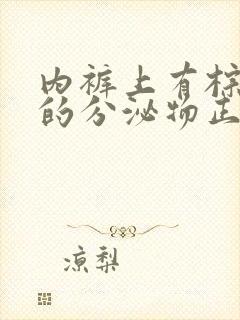 内裤上有棕
的分泌物正
凉梨